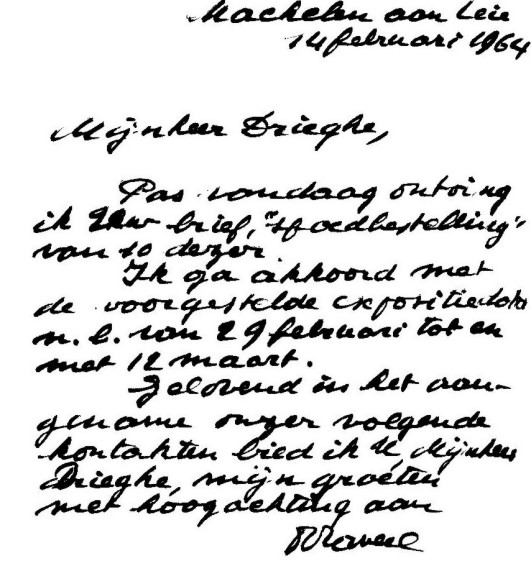 Machelen aan Leie
14 februari 1964
Mijnheer Drieghe,
Pas vandaag ontving
ik Uw brief, "spoedbestelling"
van 10 dezer.
Ik ga akkoord met
de voorgestelde expositiedata
n.l. van 29 februari tot en
met 12 maart.
Gelovend in het aan-
gename onzer volgende
kontakten bied ik U, Mijnheer
Drieghe, mijn groeten
met hoogachting aan
RRaveel